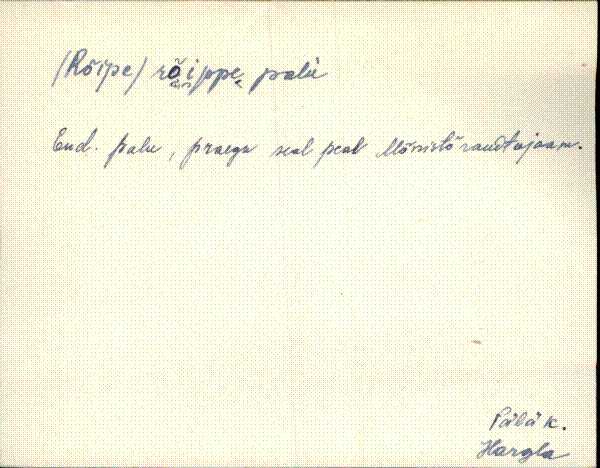 (Rõipe) rõippe palù
End. palu, praegu seal peal Mõnistõ raudteejaam.
Hargla